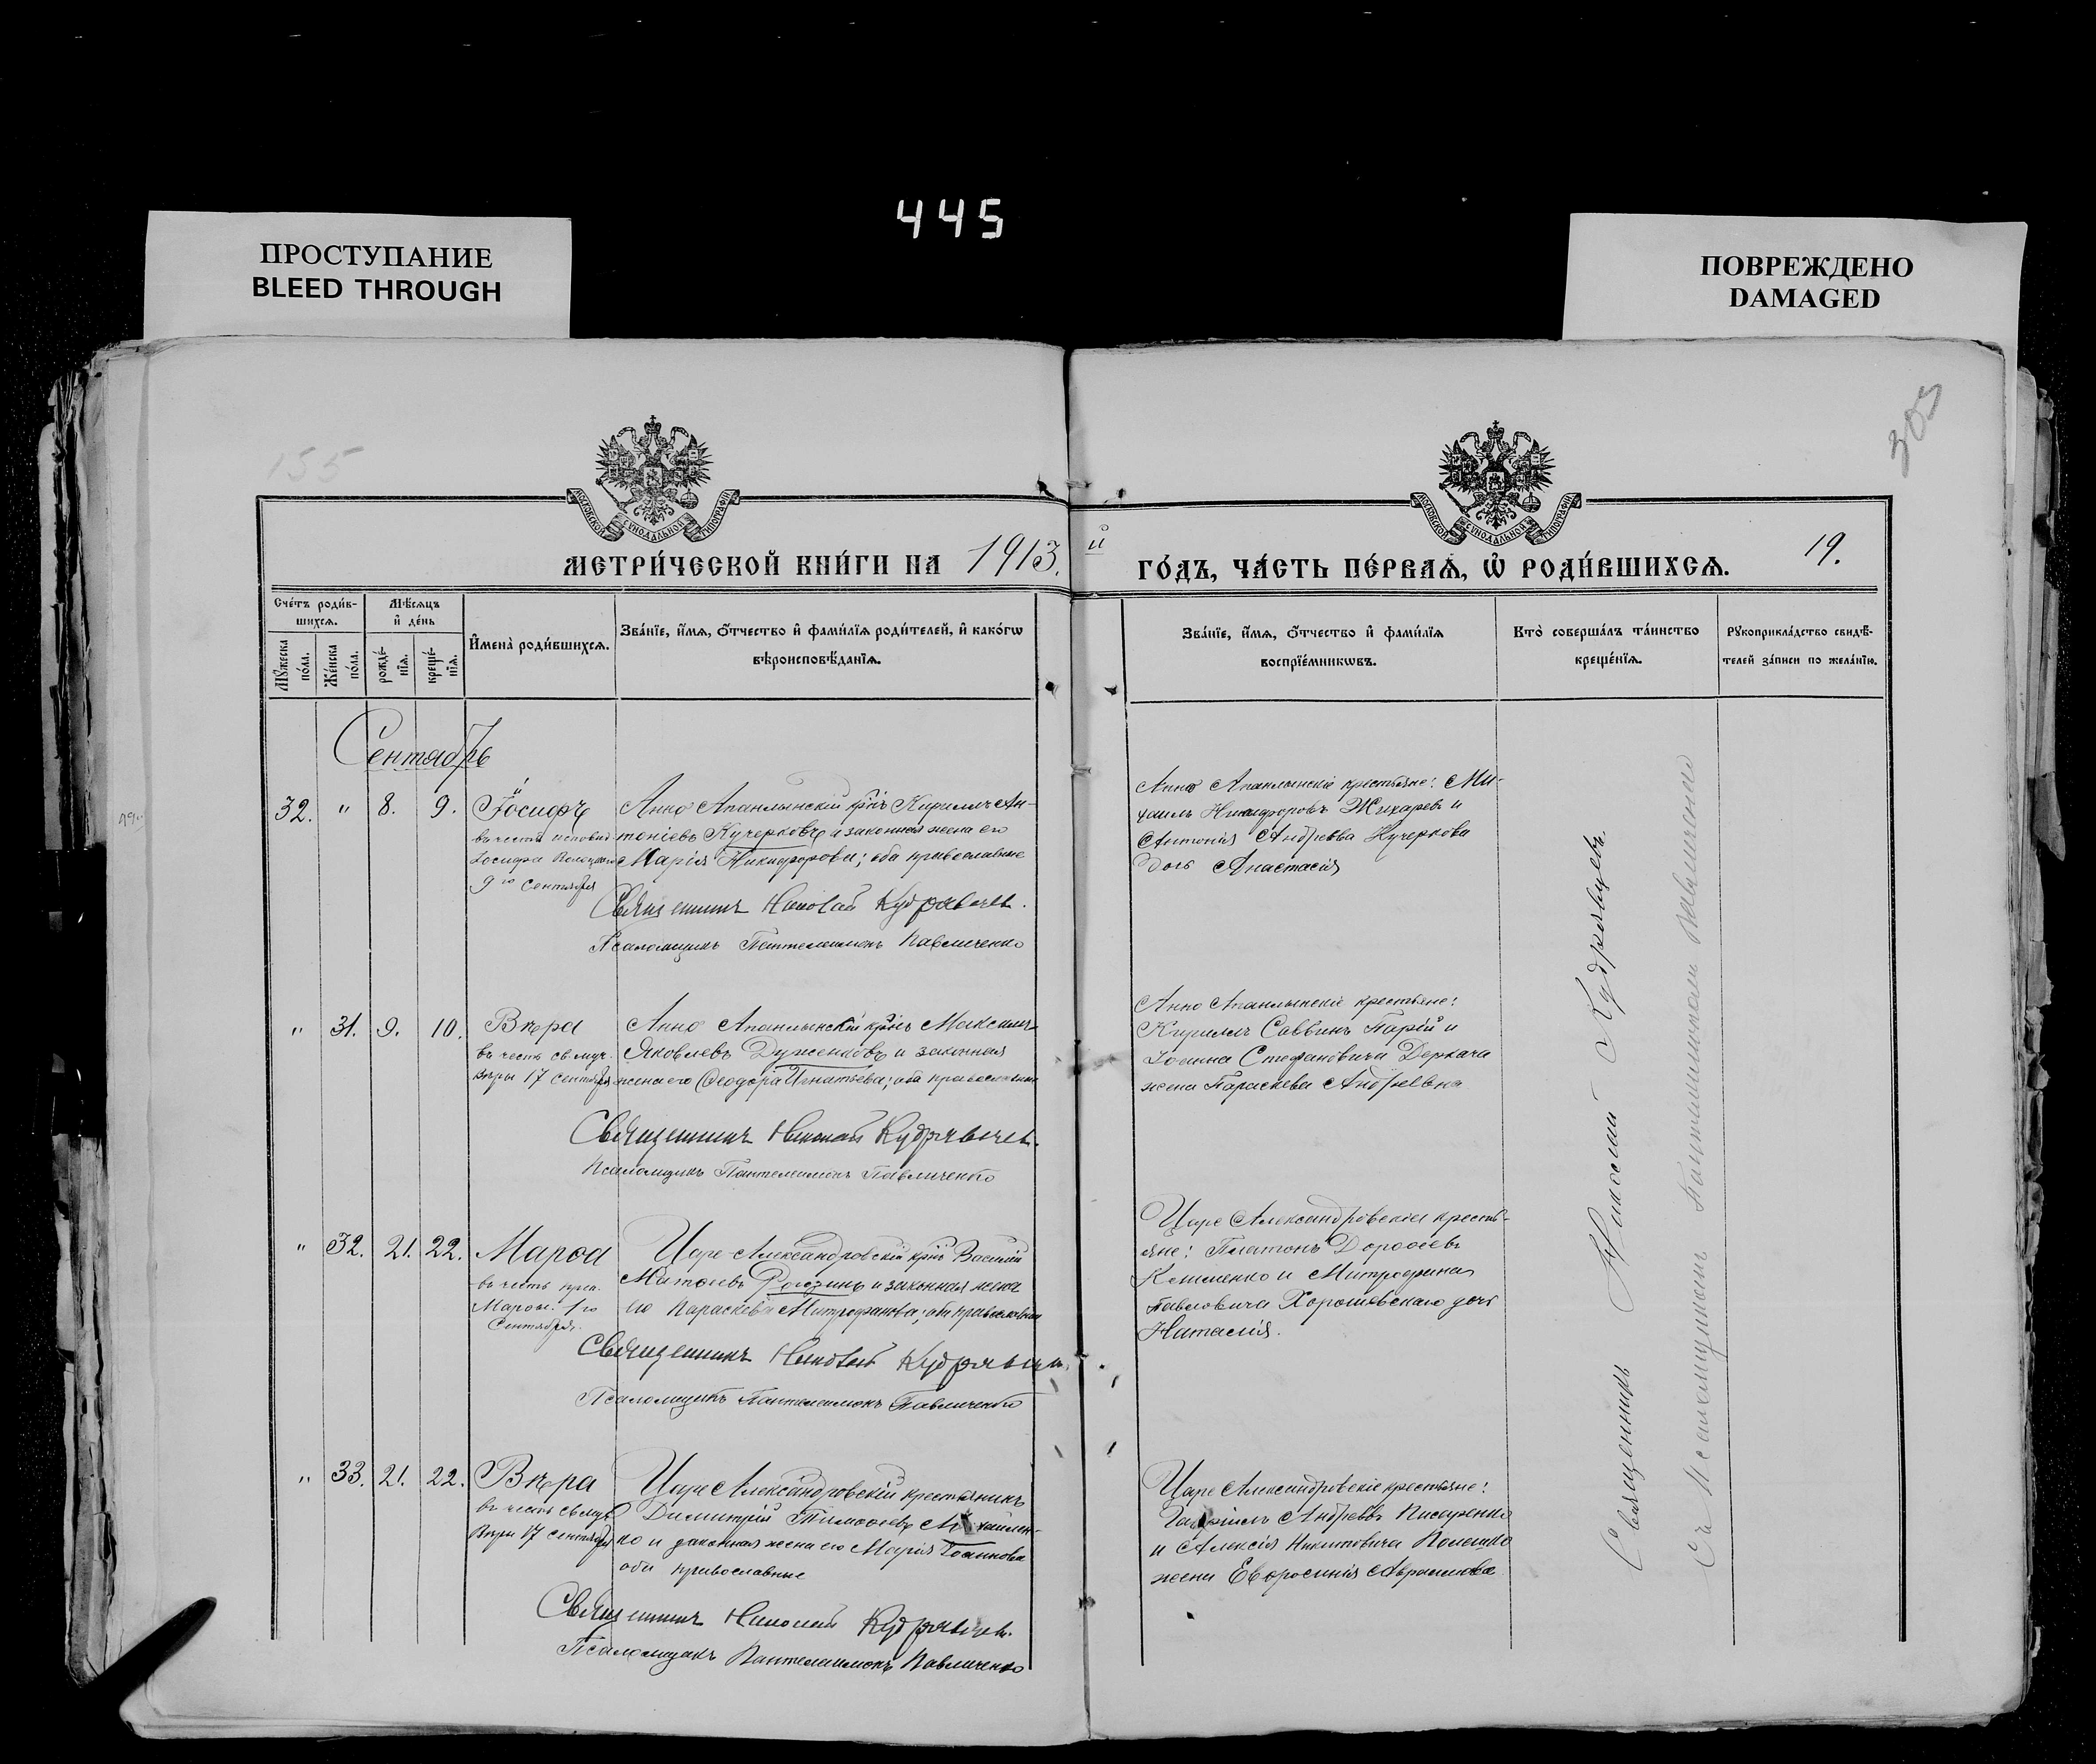 445
ПРОСТУПАНИЕ
BLEED THROUGH
ПОВРЕЖДЕНО
DAMAGED
155
303
МОСКОВСКОЙ СѴНОДАЛЬНОЙ ТИПОГРАФІИ
МОСКОВСКОЙ СѴНОДАЛЬНОЙ ТИПОГРАФІИ
МЕТРИ́ЧЕСКОЙ КНИ́ГИ НА 1913.
й ГО́ДЪ, ЧА́СТЬ ПЕ́РВАѦ, Ѽ РОДИ́ВШИХСѦ. 19.
Сче́тъ роди́в-
шихсѧ.
Мѣ́сѧцъ
и҆ де́нь
Мꙋ́жеска
по́ла.
Же́нска
по́ла.
рожде́-
нїѧ.
креще́-
нїѧ.
И҆мена̀ роди́вшихсѧ.
Зва́нїе, и҆́мѧ, ѻ҆́тчество и҆ фами́лїѧ роди́телей, и҆ како́гѡ
вѣроисповѣ́данїѧ.
Зва́нїе, и҆́мѧ, ѻ҆́тчество и҆ фами́лїѧ
воспрїе́мникѡвъ.
Кто̀ соверша́лъ та́инство
креще́нїѧ.
Рꙋкоприкла́дство свидѣ́-
телей за́писи по жела́нїю.
Сентябрь
32. " 8. 9. Іосифъ
въ честь исповѣд
Іосифа Волоцкаго
9го Сентября
Анно Апанлынскій кр-нъ Кириллъ Ан-
тоніевъ Кучерковъ и законная жена его
Марія Никифорова; оба православные
Священникъ Николай Кудрявцевъ.
Псаломщикъ Пантелеимонъ Павличенко
Анно Апанлынскіе крестьяне: Ми-
хаилъ Никифоровъ Жихаревъ и
Антонія Андреева Кучеркова
дочь Анастасія
" 31. 9. 10. Вѣра
въ честь св. муч.
Вѣры 17 Сентября
Анно Апанлынскій кр-нъ Максимъ
Яковлевъ Дуженковъ и законная
жена его Ѳеодора Игнатьева; оба православные
Священникъ Николай Кудрявцевъ.
Псаломщикъ Пантелеимонъ Павличенко
Анно Апанлынскіе крестьяне:
Кириллъ Саввинъ Парій и
Іоанна Стефановича Деркача
жена Параскева Андреевна
" 32. 21. 22. Марѳа
въ честь преп.
Марѳы. 1го
Сентября.
Царе-Александровскій кр-нъ Василій
Матѳеевъ Рогозинъ и законная жена
его Параскева Митрофанова; оба православные
Священникъ Николай Кудрявцевъ.
Псаломщикъ Пантелеимонъ Павличенко
Царе Александровскіе кресть-
яне: Платонъ Дороѳеевъ
Клименко и Митрофана
Павловича Хорошевскаго дочь
Наталія.
" 33. 21. 22. Вѣра
въ честь св. муч.
Вѣры 17 Сентября
Царе Александровскій крестьянинъ
Димитрій Тимоѳеевъ Михайлен-
ко и законная жена его Марія Іоаннова
оба православные
Священникъ Николай Кудрявцевъ.
Псаломщикъ Пантелеимонъ Павличенко
Царе Александровскіе крестьяне:
Гавріилъ Андреевъ Писаренко
и Алексія Никитовича Колешко
жена Евфросинія Авраамова
Священникъ Николай Кудрявцевъ
Съ Псаломщикомъ Пантелеимономъ Павличенко